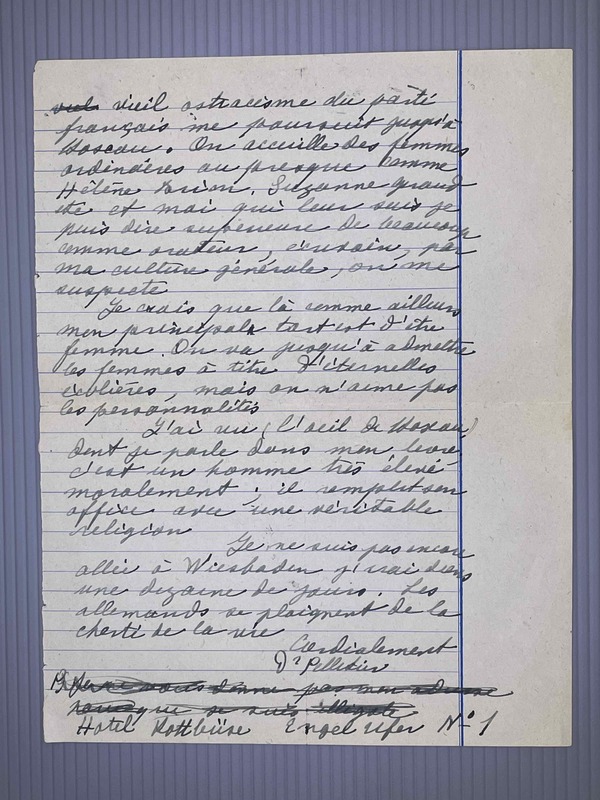 vieil ostracisme du parti
français me poursuit jusqu'à
Moscou. On accuille des femmes
ordinaires ou presque comme
Hélène Brion, Suzanne Giraud
etc et moi qui leur suis je
puis dire supérieure de beaucoup
comme orateur, écrivain, par
ma culture générale, on me
suspecte
Je crois que là comme ailleurs
mon principale tort est d'être
femme. On va jusqu'à admettre
les femmes à titre d'éternelles
écolières, mais on n'aime pas
les personnalités
J'ai vu (l'oeil de Moscou)
dont je parle dans mon livre
c'est un homme très élevé
moralement ; il remplit son
office avec une véritable
religion
Je ne suis pas encore
allée à Wiesbaden j'irai dans
une dizaine de jours. Les
allemands se plaignent de la
cherté de la vie
Cordialement
Dr Pelletier
donne pas mon adresse
Hotel Kottbüse Engel Ufer No 1